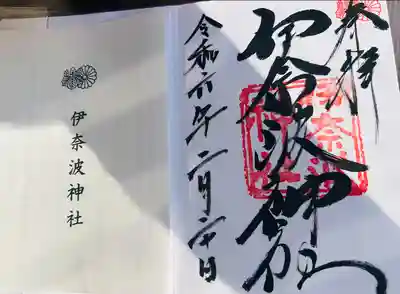 奉拝
伊奈波神社
令和六年二月二十日
伊奈波神社